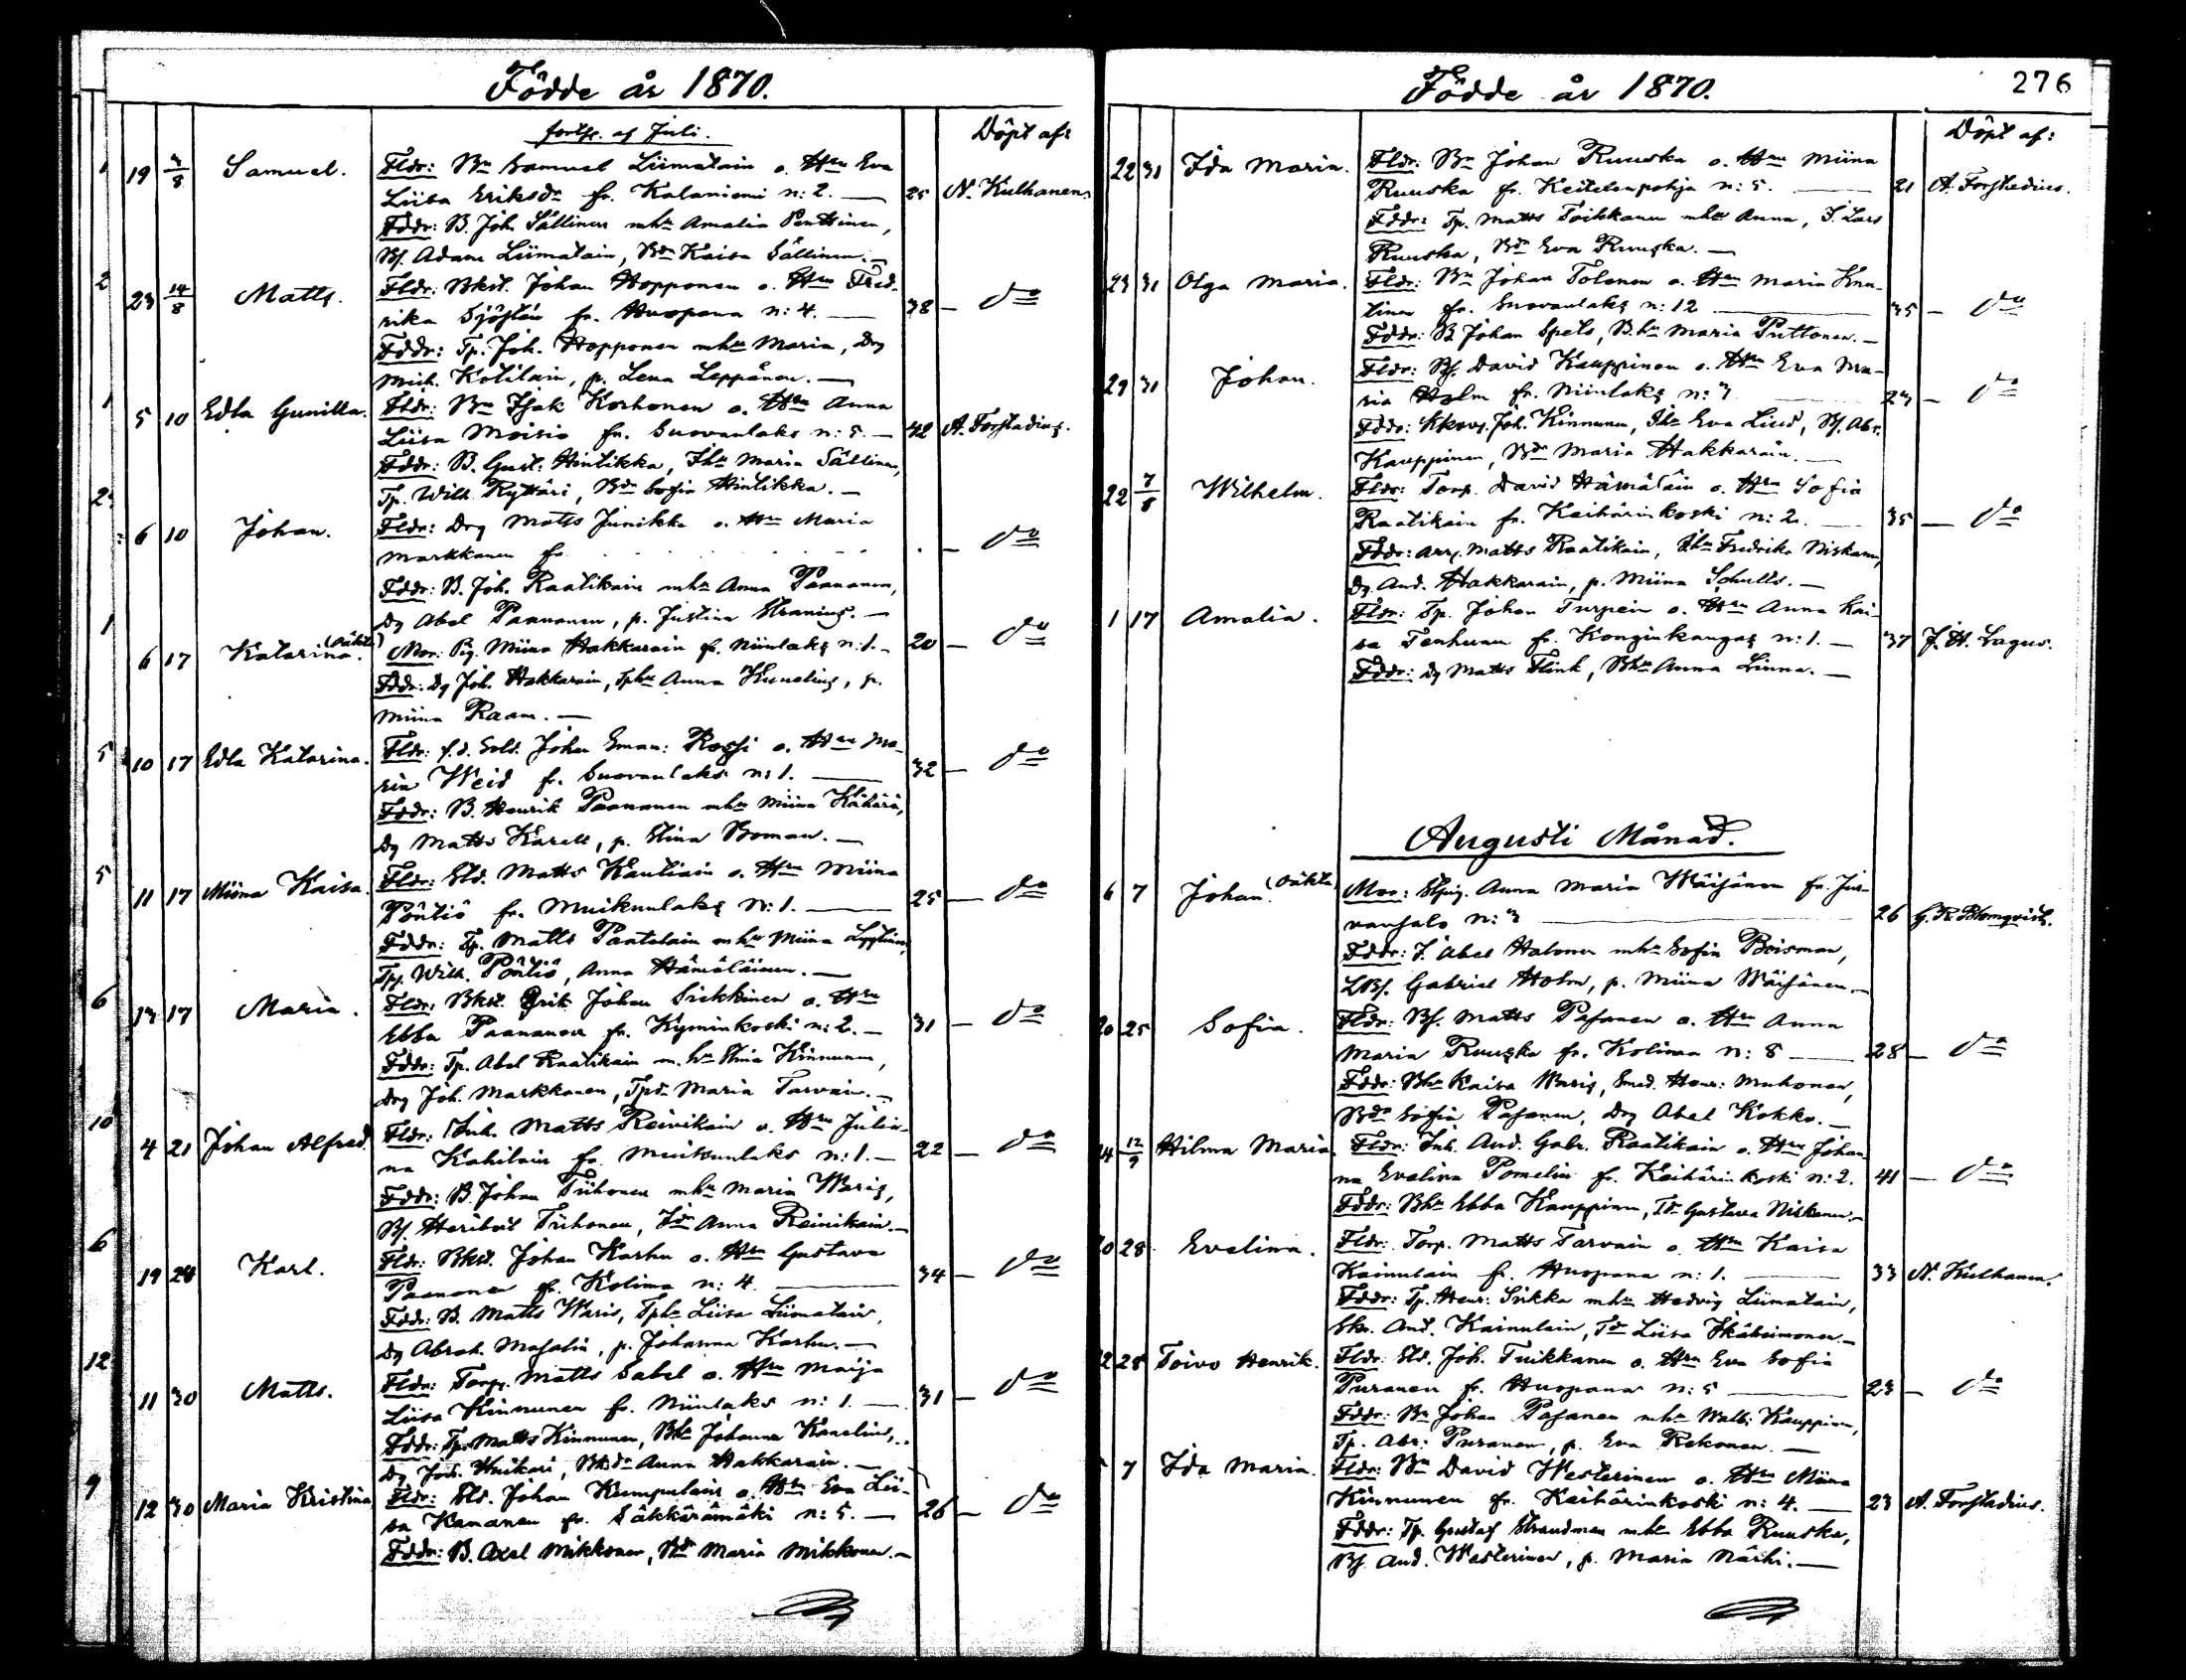 Födde år 1870.
forts. af Juli.
Döpt af:
1 19 7/8 Samuel. Fldr: Bn Samuel Liimatain o. Hru Eva
Liisa Eriksdr fr. Kalaniemi n: 2. — 25 N. Kulhanen.
Fddr: B. Joh. Sällinen mhu Amalia Penttinen,
Bs. Adam Liimatain, Bdr Kaisa Sällinen. —
2 23 14/8 Matts. Fldr: Bkst. Johan Hopponen o. Hru Fred-
rika Sjöstén fr. Huopana n: 4. — 38 — do
Fddr: Tp. Joh. Hopponen mhu Maria, Drg
Mich. Kotilain, p. Lena Leppänen. —
1 5 10 Edla Gunilla. Fldr: Bn Isak Korhonen o. Hru Anna
Liisa Moisio fr. Suovanlaks n: 5. — 42 A. Forstadius.
Fddr: B. Gust. Hintikka, Ihu Maria Sällinen,
Tp. Wilh. Ryttäri, Bdr Sofia Hintikka. —
2 6 10 Johan. Fldr: Drg Matts Junikka o. Hru Maria
Markkanen fr. . . . . . . . — do
Fddr: B. Joh. Raatikain mhu Anna Paananen,
Dg Abel Paananen, p. Justina Stranius. —
1 6 17 Katarina. (oäkta) Mon: Pig. Miina Hakkarain fr. Niinlaks n: 1. — 20 — do
Fddr: Dg Joh. Hakkarain, Tphu Anna Kunelius, p.
Miina Raam. —
5 10 17 Edla Katarina. Fldr: f.d. Sold. Johan Eman: Rossi o. Hru Ma-
ria Weid fr. Suovanlaks n: 1. — 32 — do
Fddr: B. Henrik Paananen mhu Miina Kähärä,
Dg Matts Karell, p. Stina Boman. —
5 11 17 Miina Kaisa. Fldr: Sld. Matts Kautiain o. Hru Miina
Pöntiö fr. Muikunlaks n: 1. — 25 — do
Fddr: Tp. Matts Pantelain mhu Miina
Tps. Wilh. Pöntiö, Anna Hämäläinen. —
6 13 17 Maria. Fldr: Bkst. Erik Johan Siekkinen o. Hru
Ebba Paananen fr. Kyminkoski n: 2. — 31 — do
Fddr: Tp. Abel Raatikain m. hu Stina Kinnunen,
Drg Joh. Markkanen, Tpdr Maria Tarvain. —
10 4 21 Johan Alfred. Fldr: Inh. Matts Reinikain o. Hru Julia-
na Kahilain fr. Muikunlaks n: 1. — 22 — do
Fddr: B. Johan Tiihonen mhu Maria Waris,
Bs. Heribert Tiihonen, Idr Anna Reinikain. —
6 19 24 Karl. Fldr: Bkst. Johan Karhu o. Hru Gustava
Paananen fr. Kolima n: 4. — 34 — do
Fddr: B. Matts Waris, Tphu Liisa Liimatain,
Dg Abrah. Masalin, p. Johanna Karhu. —
12 11 30 Matts. Fldr: Torp. Matts Sabel o. Hru Maija
Liisa Kinnunen fr. Niinlaks n: 1. — 31 — do
Fddr: Tp. Matts Kinnunen, Bhu Johanna Kanelius,
Dg Joh. Huikari, Bkdr Anna Hakkarain. —
9 12 30 Maria Kristina Fldr: Sld. Johan Kumpulain o. Hru Eva Lii-
sa Kananen fr. Säkkärämäki n: 5. — 26 — do
Fddr: B. Axel Mikkonen, Bdr Maria Mikkonen. —
Födde år 1870.
276
Döpt af:
22 31 Ida Maria. Fldr: Bn Johan Ruuska o. Hru Miina
Ruuska fr. Keitelenpohja n: 5. — 21 A. Forstadius.
Fddr: Tp. Matts Toikkanen mhu Anna, I. Lars
Ruuska, Bdr Eva Ruuska. —
23 31 Olga Maria. Fldr: Bn Johan Tolonen o. Hru Maria Knu-
tinen fr. Suovanlaks n: 12 — 35 — do
Fddr: B Johan Spets, B.hu Maria Puttonen. —
29 31 Johan. Fldr: Bs. David Kauppinen o. Hru Eva Ma-
ria Holm fr. Niinlaks n: 3 — 23 — do
Fddr: Joh. Kinnunen, Ihu Eva Lind, Bs. Abr.
Kauppinen, Bdr Maria Hakkarain. —
22 7/8 Wilhelm. Fldr: Torp. David Hämäläin o. Hru Sofia
Raatikain fr. Keihärinkoski n: 2. — 35 — do
Fddr: Arr. Matts Raatikain, Ihu Fredrika Niskanen,
Dg And. Hakkarain, p. Miina Schults. —
1 17 Amalia. Fldr: Tp. Johan Turpein o. Hru Anna Kai-
sa Tenhunen fr. Konginkangas n: 1. — 37 J. H. Lagus.
Fddr: Dg Matts Flink, Bhu Anna Linna. —
Augusti Månad.
6 7 Johan. (oäkta) Mon: Anna Maria Wäisänen fr. Jur-
vansalo n: 3 — 26 G. R. Blomqvist.
Fddr: I. Abel Halonen mhu Sofia Boisman,
LBs. Gabriel Holm, p. Miina Wäisänen. —
20 25 Sofia. Fldr: Bs. Matts Pasanen o. Hru Anna
Maria Ruuska fr. Kolima n: 8 — 28 — do
Fddr: Bhu Kaisa Waris, Smed. Henr: Muhonen,
Bdr Sofia Pasanen, Drg Abel Kokko. —
14 12/9 Hilma Maria. Fldr: Inh. And. Gabr. Raatikain o. Hru Johan-
na Evelina Pomelin fr. Keihärinkoski n: 2. 41 — do
Fddr: Bhu Ebba Kauppinen, Idr Gustava Niskanen. —
20 28 Evelina. Fldr: Torp. Matts Tarvain o. Hru Kaisa
Kainulain fr. Huopana n: 1. — 33 N. Kulhanen.
Fddr: Tp. Henr: Sikka mhu Hedvig Liimatain,
And. Kainulain, Tdr Liisa Ikäheimonen. —
22 28 Toivo Henrik. Fldr: Sld. Joh. Tuikkanen o. Hru Eva Sofia
Puranen fr. Huopana n: 5 — 23 — do
Fddr: Bn Johan Pasanen mhu Walb: Kauppinen,
Tp. Abr: Puranen, p. Eva Rekonen. —
7 Ida Maria. Fldr: Bn David Westerinen o. Hru Miina
Kinnunen fr. Keihärinkoski n: 4. — 23 A. Forstadius.
Fddr: Tp. Gustaf Strandman mhu Ebba Ruuska,
Bs. And. Westerinen, p. Maria Närhi. —